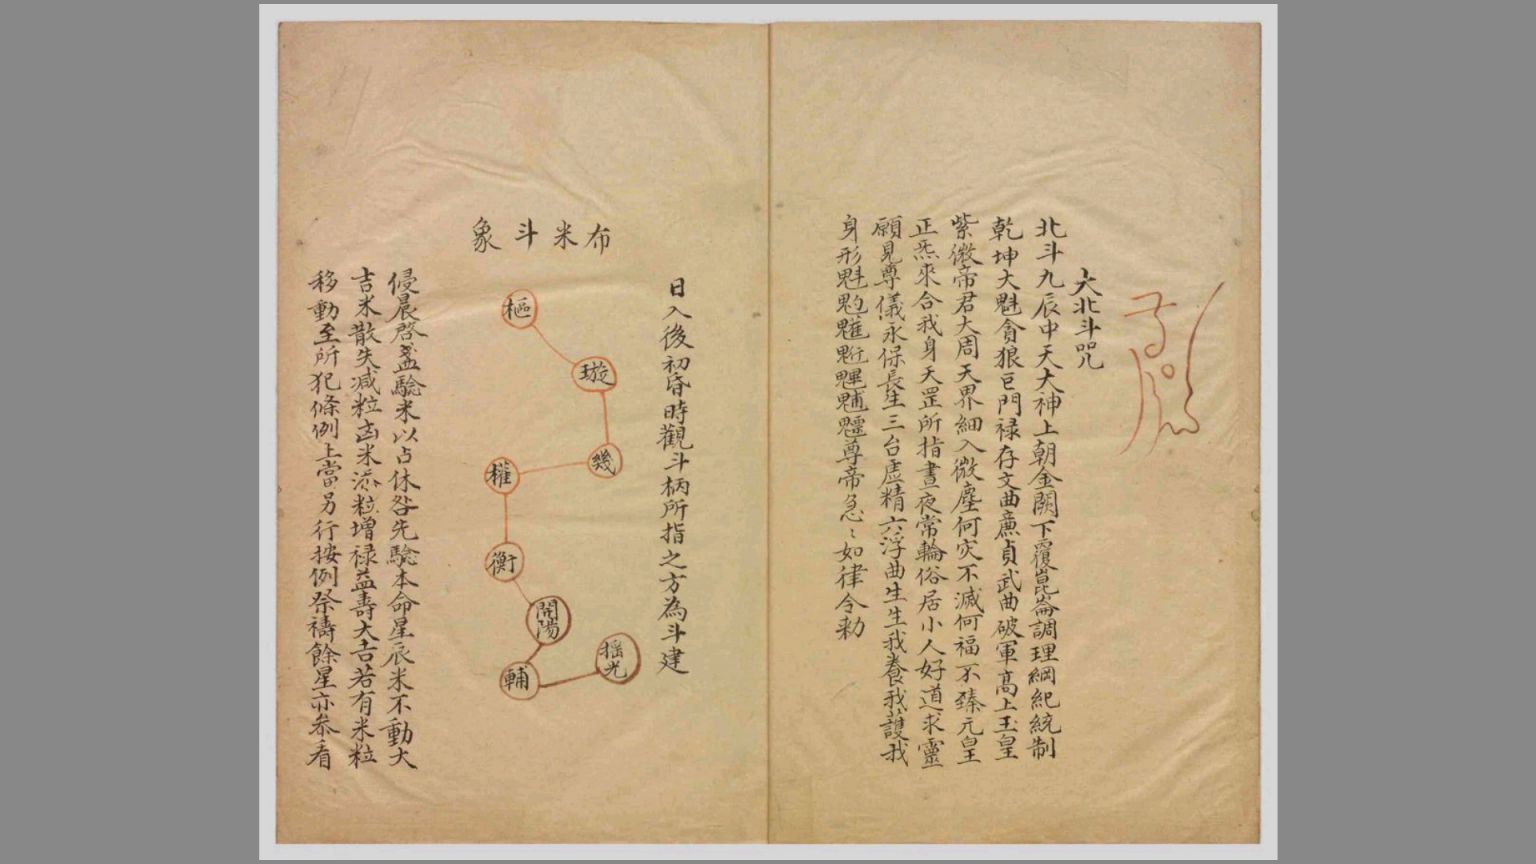 大北斗咒
北斗九辰中天大神上朝金闕下覆崑崙調理綱紀統制
乾坤大魁貪狼巨門禄存文曲廉貞武曲破軍高上玉皇
紫微帝君大周天界細入微塵何灾不滅何福不臻元皇
正炁來合我身天罡所指晝夜常輪俗居小人好道求靈
願見尊儀永保長生三台虛精六浮曲生生我養我護我
身形魁𩲃䰢魓魒尊帝急〻如律令勅
日入後初昏時觀斗柄所指之方為斗建
布米斗象
樞
璇
幾
權
衡
開陽
輔
揺光
侵晨啓盞驗米以占休咎先驗本命星辰米不動大
吉米散失減粒凶米添粒增禄益壽大吉若有米粒
移動至所犯條例上當另行按例祭禱餘星亦叅看